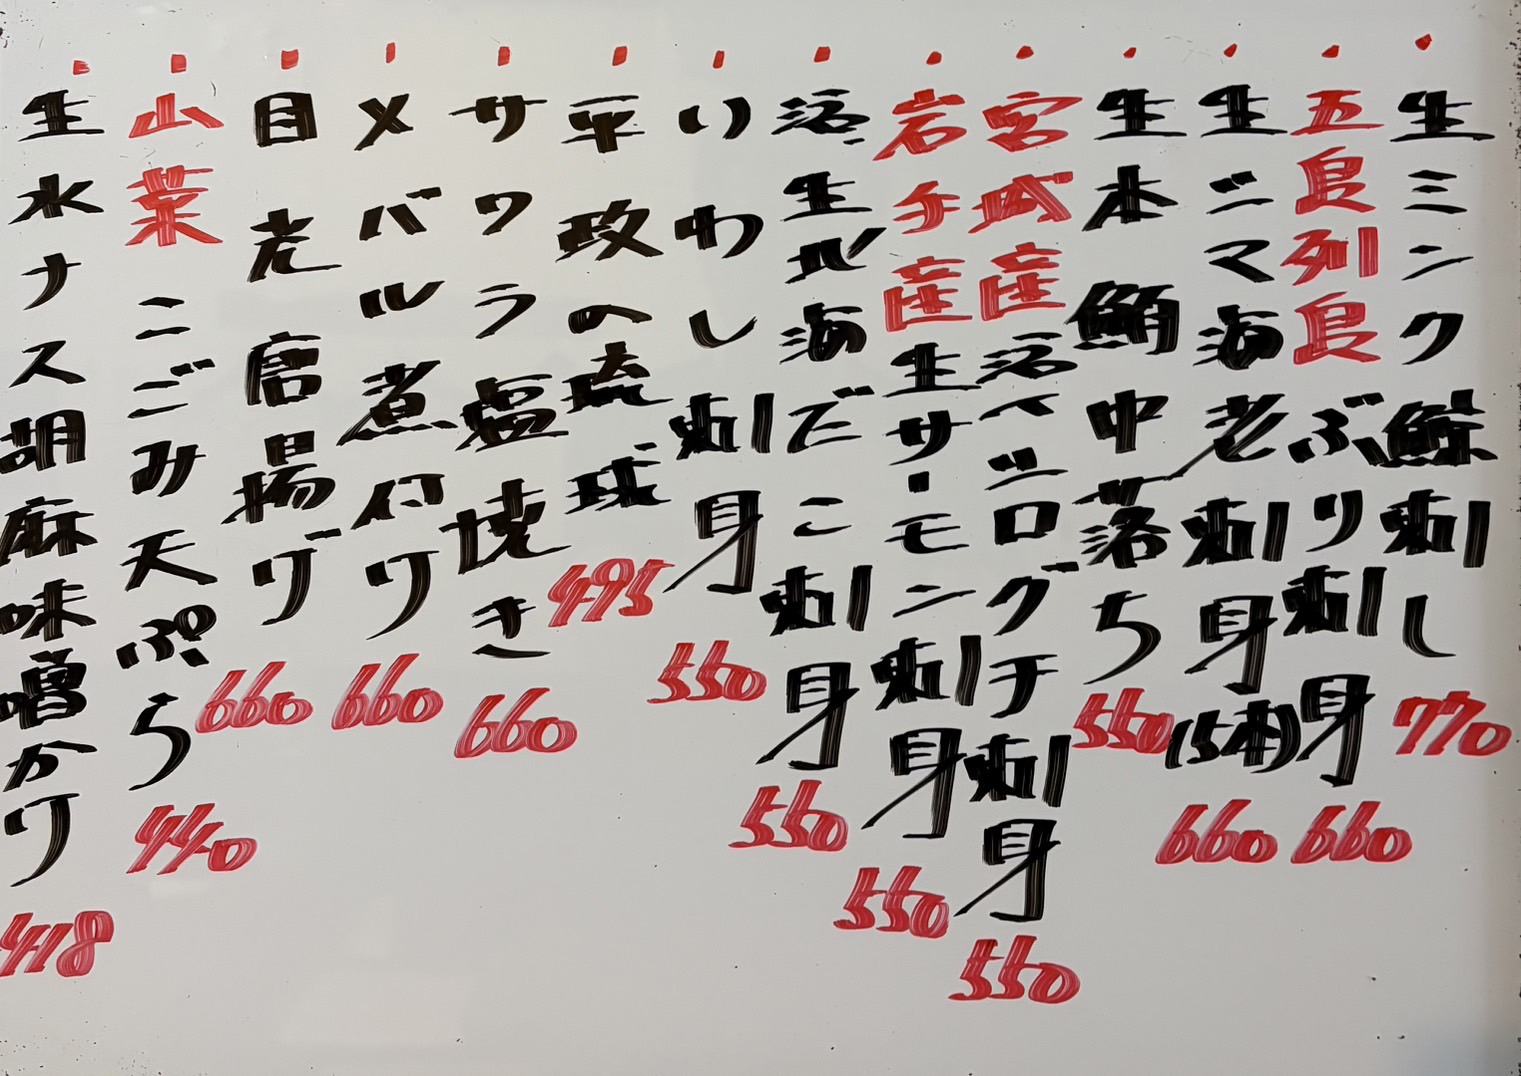 ・生ミンク鯨刺し 770
・五島列島ぶり刺身 660
・生ニマ海老刺身(5本) 660
・生本鮪中落ち 550
・宮城産活ベツログチ刺身 550
・岩手産生サーモン刺身 550
・活生北海だこ刺身 550
・いわし刺身 550
・平政の琉球 495
・サワラ塩焼き 660
・メバル煮付け 660
・目光唐揚げ 660
・山菜 こごみ天ぷら 440
・生水ナス胡麻味噌かけ 418